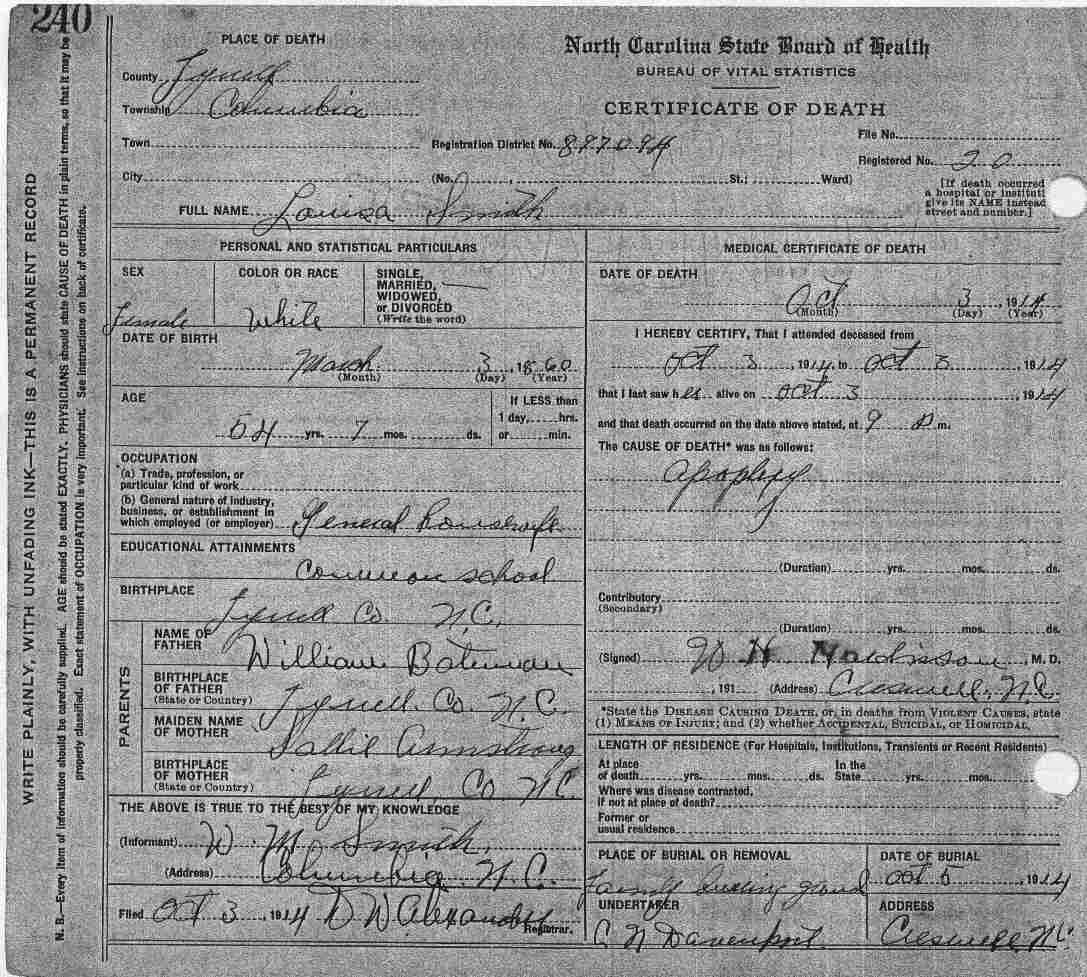 240
WRITE PLAINLY, WITH UNFADING INK—THIS IS A PERMANENT RECORD
N. B.—Every item of information should be carefully supplied. AGE should be stated EXACTLY. PHYSICIANS should state CAUSE OF DEATH in plain terms, so that it may be
properly classified. Exact statement of OCCUPATION is very important. See instructions on back of certificate.
PLACE OF DEATH
County Tyrrell
Township Columbia
Town
City
North Carolina State Board of Health
BUREAU OF VITAL STATISTICS
CERTIFICATE OF DEATH
Registration District No. 887094
File No.
Registered No. 20
(No. , St.; Ward)
[If death occurred
a hospital or instituti
give its NAME instead
street and number.]
FULL NAME Louisa Smith
PERSONAL AND STATISTICAL PARTICULARS
SEX
Female
COLOR OR RACE
White
SINGLE,
MARRIED,
WIDOWED,
or DIVORCED
(Write the word)
DATE OF BIRTH
March 3, 1860
(Month) (Day) (Year)
AGE
54 yrs. 7 mos. ds.
If LESS than
1 day, hrs.
or min.
OCCUPATION
(a) Trade, profession, or
particular kind of work
(b) General nature of industry,
business, or establishment in
which employed (or employer) General housewife
EDUCATIONAL ATTAINMENTS
Common school
BIRTHPLACE
Tyrrell Co. N.C.
PARENTS
NAME OF
FATHER
William Bateman
BIRTHPLACE
OF FATHER
(State or Country)
Tyrrell Co. N.C.
MAIDEN NAME
OF MOTHER
Sallie Armstrong
BIRTHPLACE
OF MOTHER
(State or Country)
Tyrrell Co NC
THE ABOVE IS TRUE TO THE BEST OF MY KNOWLEDGE
(Informant) W. M. Smith
(Address) Columbia N.C.
Filed Oct 3, 1914 D W Alexander
Registrar.
MEDICAL CERTIFICATE OF DEATH
DATE OF DEATH
Oct 3, 1914
(Month) (Day) (Year)
I HEREBY CERTIFY, That I attended deceased from
Oct 3, 1914, to Oct 3, 1914
that I last saw her alive on Oct 3, 1914
and that death occurred on the date above stated, at 9 m.
The CAUSE OF DEATH* was as follows:
Apoplexy
(Duration) yrs. mos. ds.
Contributory
(Secondary)
(Duration) yrs. mos. ds.
(Signed) W H, M. D.
, 191 (Address) Creswell, N.C.
*State the DISEASE CAUSING DEATH, or, in deaths from VIOLENT CAUSES, state
(1) MEANS OF INJURY; and (2) whether ACCIDENTAL, SUICIDAL, or HOMICIDAL.
LENGTH OF RESIDENCE (For Hospitals, Institutions, Transients or Recent Residents)
At place
of death yrs. mos. ds.
In the
State yrs. mos.
Where was disease contracted,
if not at place of death?
Former or
usual residence
PLACE OF BURIAL OR REMOVAL
Family burying ground
DATE OF BURIAL
Oct 5, 1914
UNDERTAKER
C N Davenport
ADDRESS
Creswell, NC.